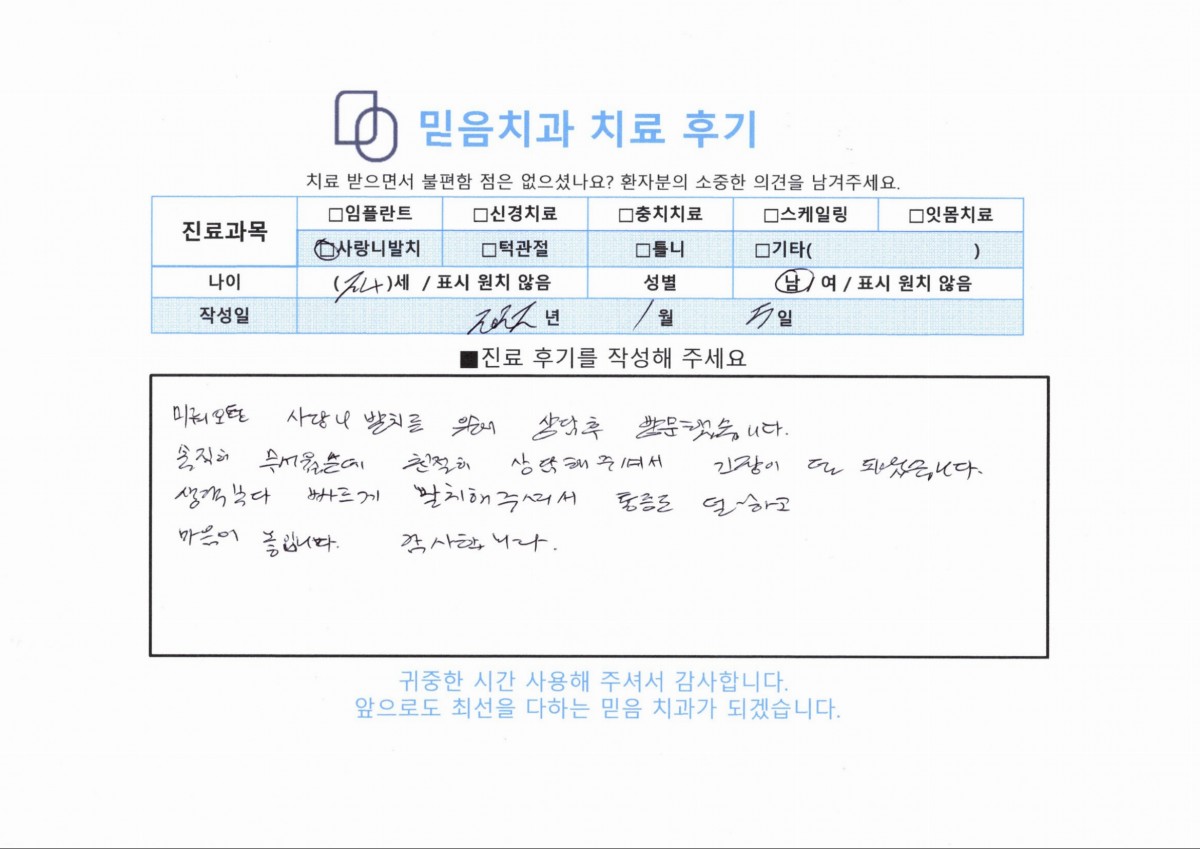 믿음치과 치료 후기
치료 받으면서 불편함 점은 없으셨나요? 환자분의 소중한 의견을 남겨주세요.
진료과목 □임플란트 □신경치료 □충치치료 □스케일링 □잇몸치료
□사랑니발치 □턱관절 □틀니 □기타( )
나이 ( )세 / 표시 원치 않음 성별 남 / 여 / 표시 원치 않음
작성일 2022 년 1 월 5 일
■진료 후기를 작성해 주세요
사랑니 발치를 위해 상담후 방문했습니다.
솔직히 무서웠는데 친절히 상담해주셔서 긴장이 덜 되었습니다.
생각보다 빠르게 발치해주셔서 통증도 덜~하고
마음이 놓입니다. 감사합니다.
귀중한 시간 사용해 주셔서 감사합니다.
앞으로도 최선을 다하는 믿음 치과가 되겠습니다.